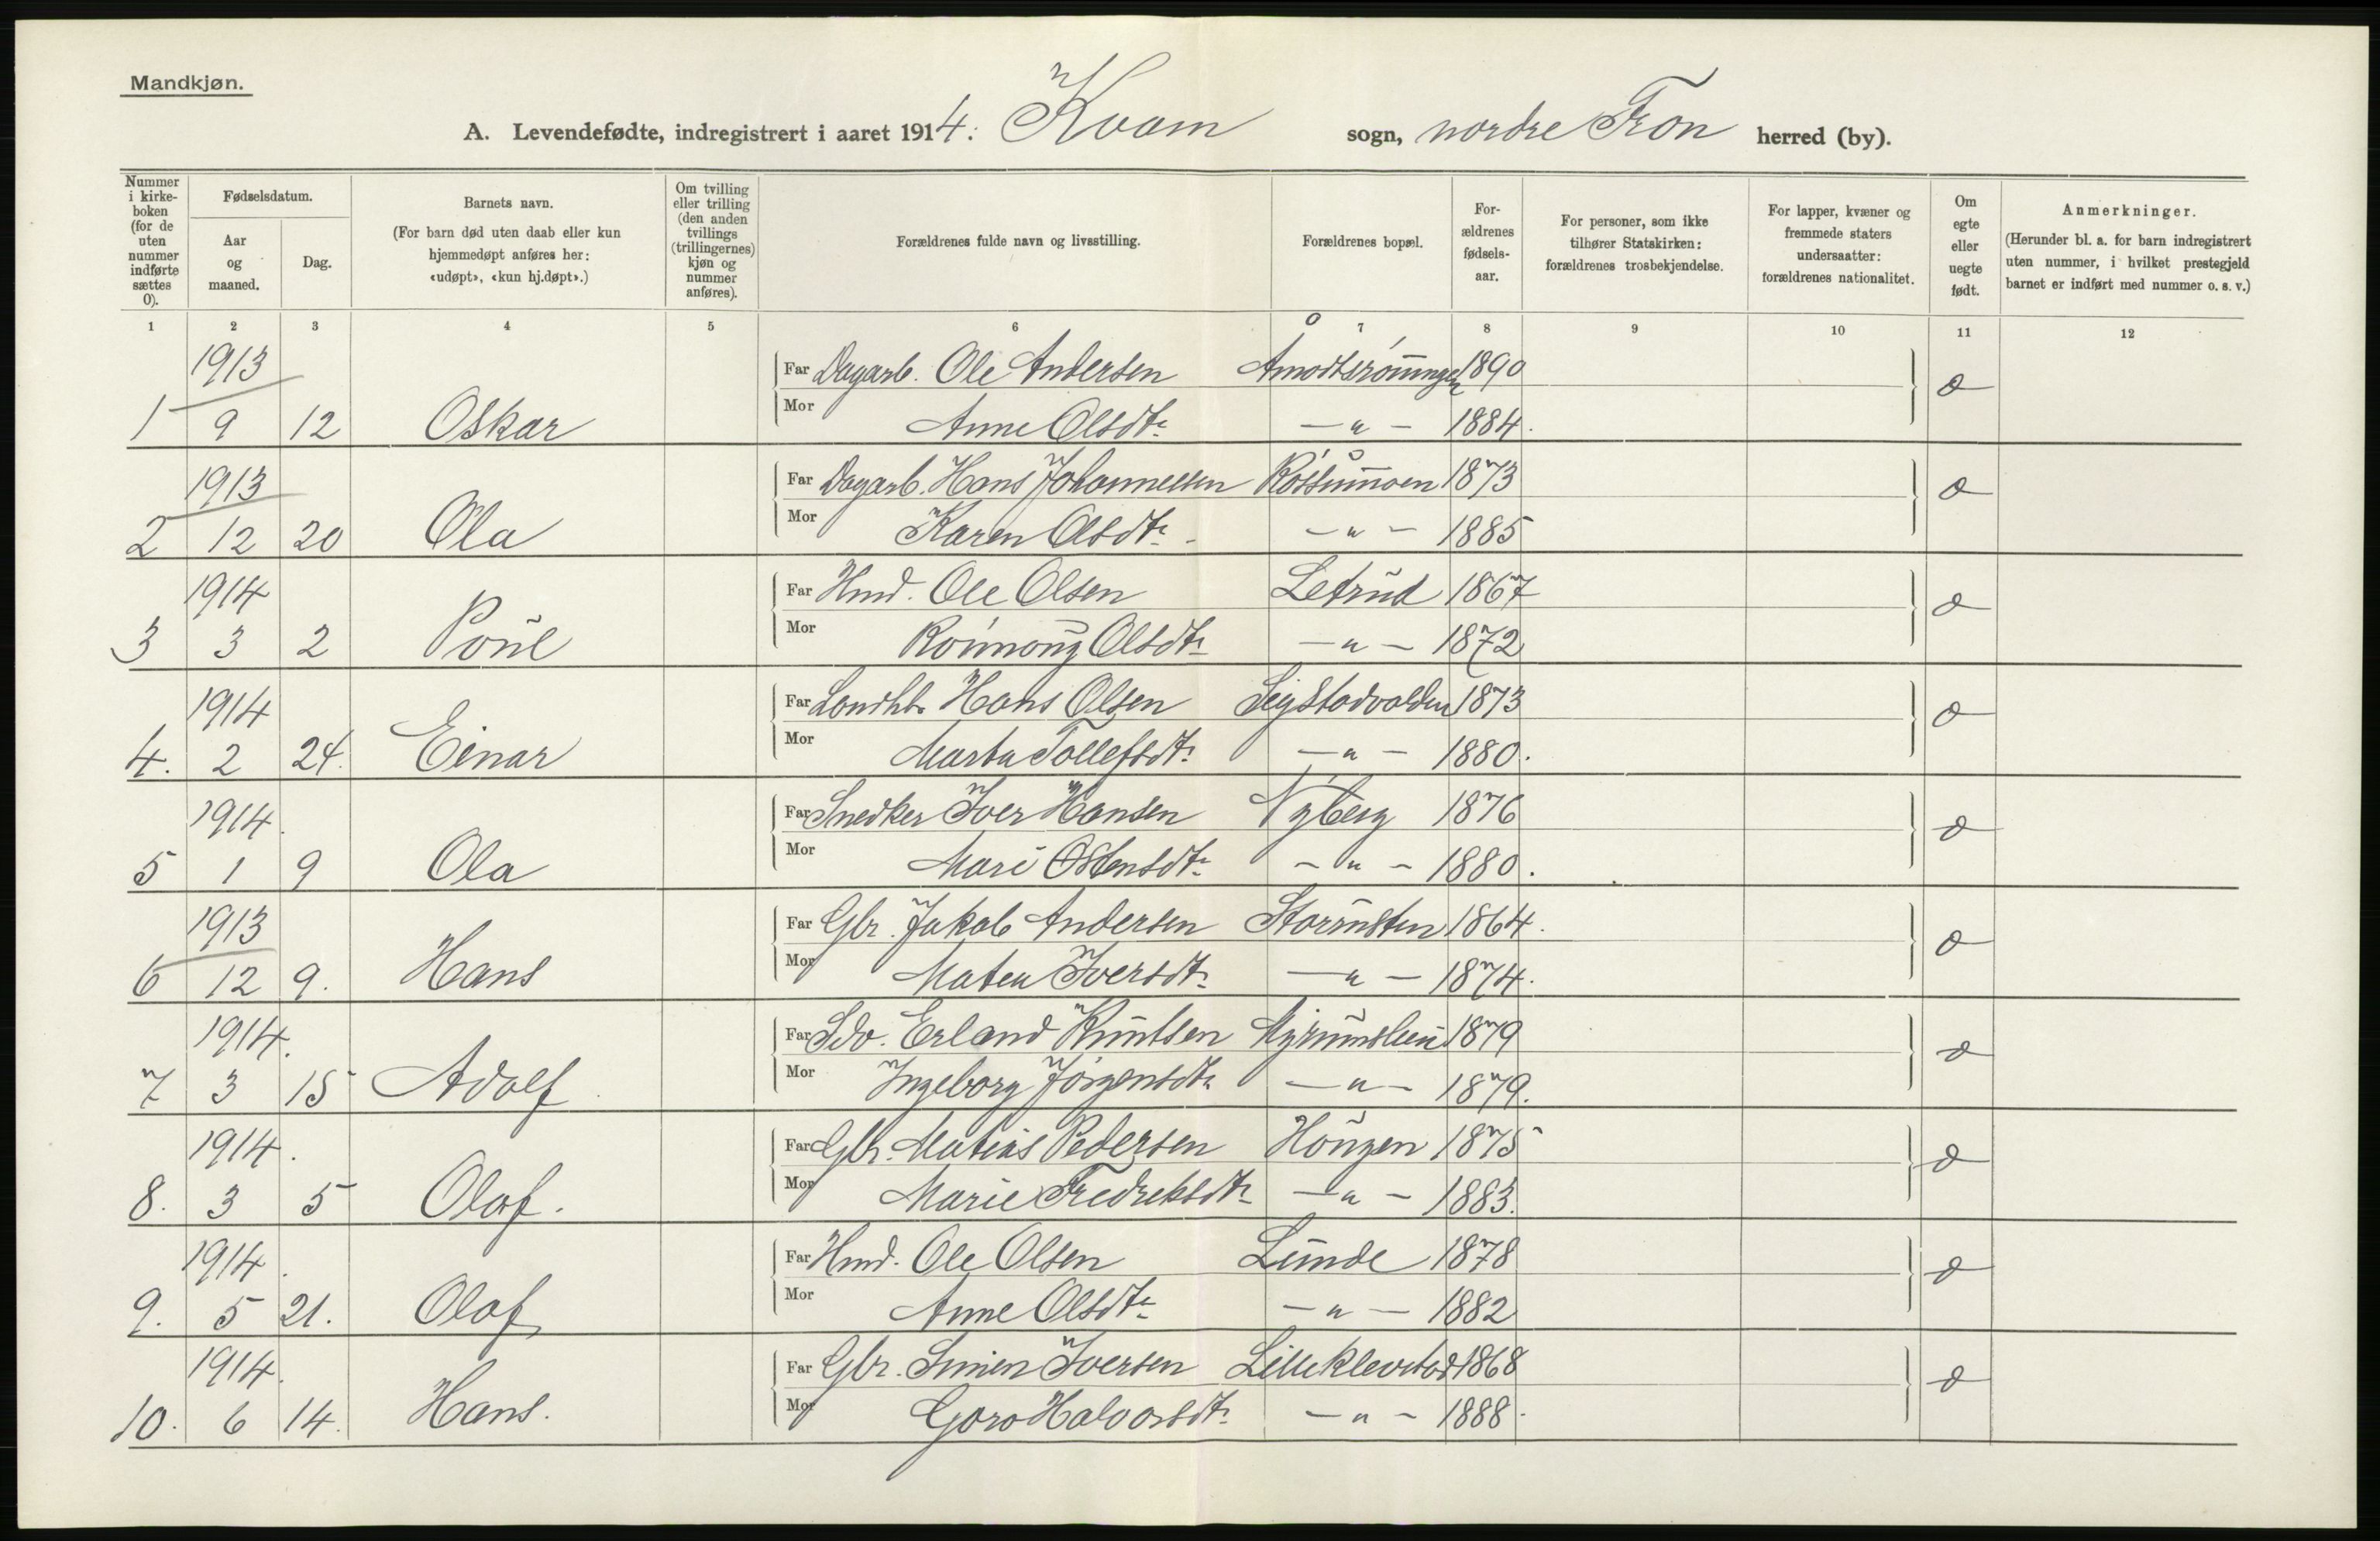 Mandkjøn.
A. Levendefødte, indregistrert i aaret 1914: Kvam sogn, nordre Fron herred (by).
Nummer i kirke-boken (for de uten nummer indførte sættes 0).
Fødselsdatum.
Aar og maaned.
Dag.
Barnets navn.
(For barn død uten daab eller kun hjemmedøpt anføres her: «udøpt», «kun hj.døpt».)
Om tvilling eller trilling (den anden tvillings (trillingernes) kjøn og nummer anføres).
Forældrenes fulde navn og livsstilling.
Forældrenes bopæl.
For-ældrenes fødsels-aar.
For personer, som ikke tilhører Statskirken: forældrenes trosbekjendelse.
For lapper, kvæner og fremmede staters undersaatter: forældrenes nationalitet.
Om egte eller uegte født.
Anmerkninger.
(Herunder bl. a. for barn indregistrert uten nummer, i hvilket prestegjeld barnet er indført med nummer o. s. v.)
1 2 3 4 5 6 7 8 9 10 11 12
1913 Far Dagarb. Ole Andersen 1890
1 9 12 Oskar Mor Anne Olsdtr. — " — 1884.
1913 Far Dagarb. Hans Johannessen Rossummoen 1873
2 12 20 Ola Mor Karen Olsdtr. — " — 1885
1914 Far Hmd. Ole Olsen Letrud 1867
3 3 2 Poul Mor Ronnoug Olsdtr. — " — 1872
1914 Far Hans Olsen Sigstadvolden 1873
4. 2 24. Einar Mor Marta Tollefsdtr. — " — 1880.
1914. Far Snedker Iver Hansen Nyberg 1876
5 1 9 Ola Mor Mari Ostensdtr. — " — 1880.
1913 Far Gbr. Jakob Andersen Storrusten 1864.
6 12 9. Hans Mor Matea Iversdtr. — " — 1874.
1914. Far Erland Knutsen 1879
7 3 15 Adolf Mor Ingeborg Jörgensdtr. — " — 1879.
1914. Far Gbr. Matias Pedersen Hougen 1875
8. 3 5 Olaf. Mor Marie Fredriksdtr. — " — 1883.
1914. Far Hmd. Ole Olsen Lunde 1878
9. 5 21. Olaf Mor Anne Olsdtr. — " — 1882
1914. Far Gbr. Simen Iversen Lilleklevstad 1868
10. 6 14. Hans. Mor Goro Halvorsdtr. — " — 1888.